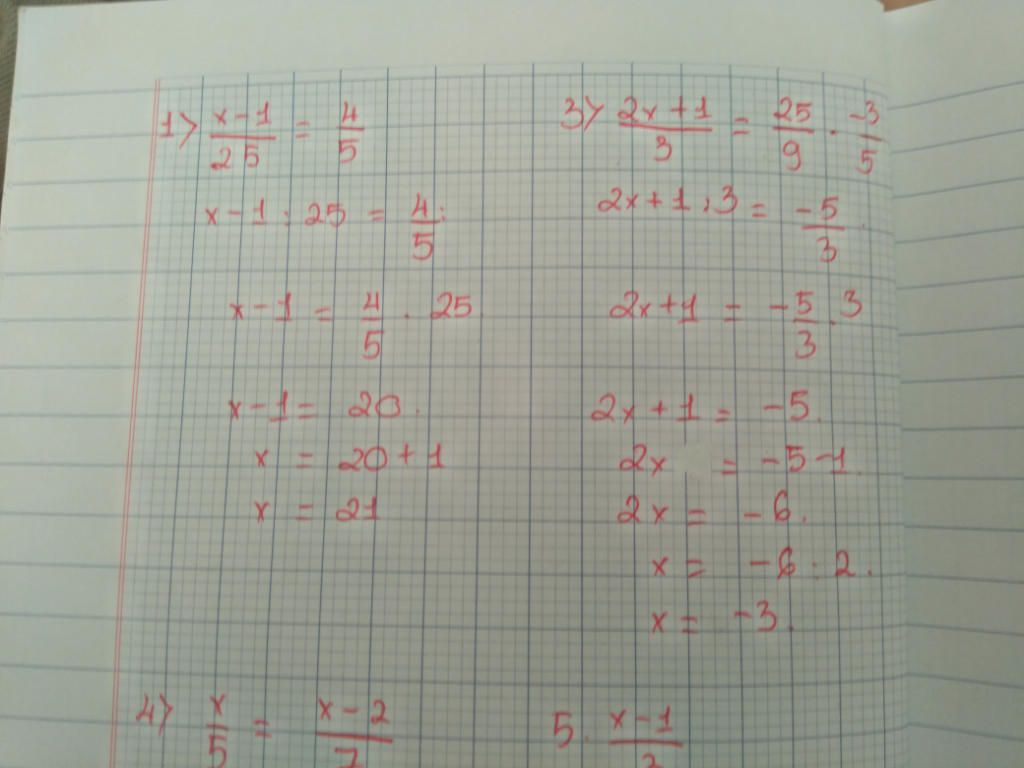 1> x-1/25 = 4/5
x-1 : 25 = 4/5 :
x-1 = 4/5 . 25
x-1 = 20.
x = 20+1
x = 21
3> 2x+1/3 = 25/9 . -3/5
2x+1 : 3 = -5/3 .
2x+1 = -5/3 . 3
2x+1 = -5.
2x = -5-1.
2x = -6.
x = -6 : 2.
x = -3.
4> x/5 = x-2/7
5. x-1/